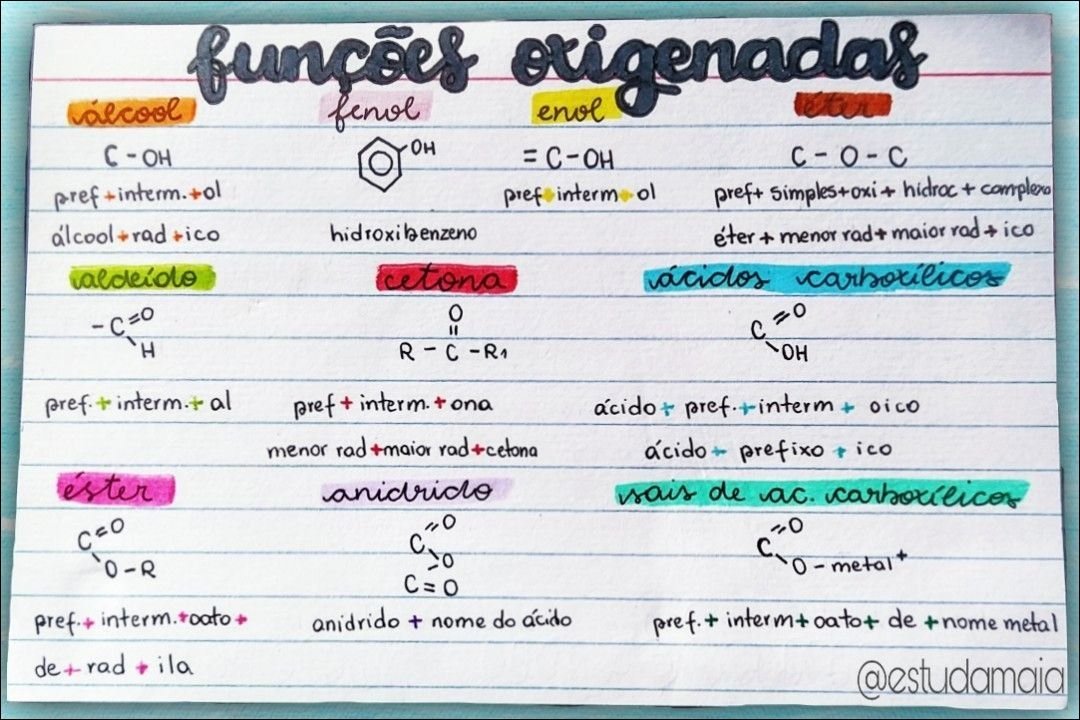 funções oxigenadas
álcool fenol enol éter
C - OH
OH
= C - OH
C - O - C
pref + interm. + ol
pref + interm + ol
pref + simples + oxi + hidroc + complexo
álcool + rad + ico
hidroxibenzeno
éter + menor rad + maior rad + ico
aldeído cetona ácidos carboxílicos
- C = O
H
O
R - C - R1
C = O
OH
pref. + interm. + al
pref + interm. + ona
ácido + pref. + interm + oico
menor rad + maior rad + cetona
ácido + prefixo + ico
éster anidrido sais de ac. carboxílicos
C = O
O - R
C = O
O
C = O
C = O
O - metal +
pref. + interm. + oato +
anidrido + nome do ácido
pref. + interm + oato + de + nome metal
de + rad + ila
@estudamaia